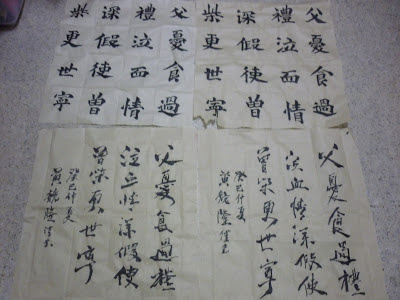 父憂食過
禮泣面情
深假使曾
柴更世寧
父憂食過
禮泣面情
深假使曾
柴更世寧
父憂食過禮
泣血情深假使
曾柴更世寧
癸巳仲夏
黃隆
父憂食過禮
泣血情深假使
曾柴更世寧
癸巳仲夏
黃隆